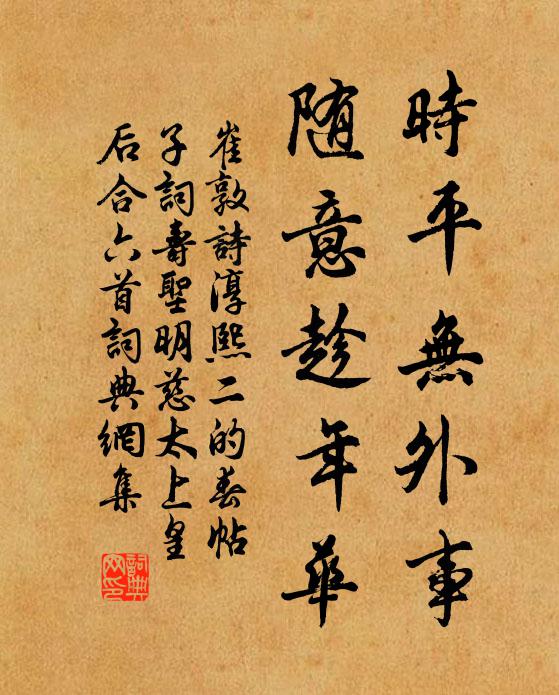 時平無外事
随意趁年華
崔敦詩淳熙二的春帖
子詞壽聖明慈太上皇
后合六首詞典網集
詞典
网印